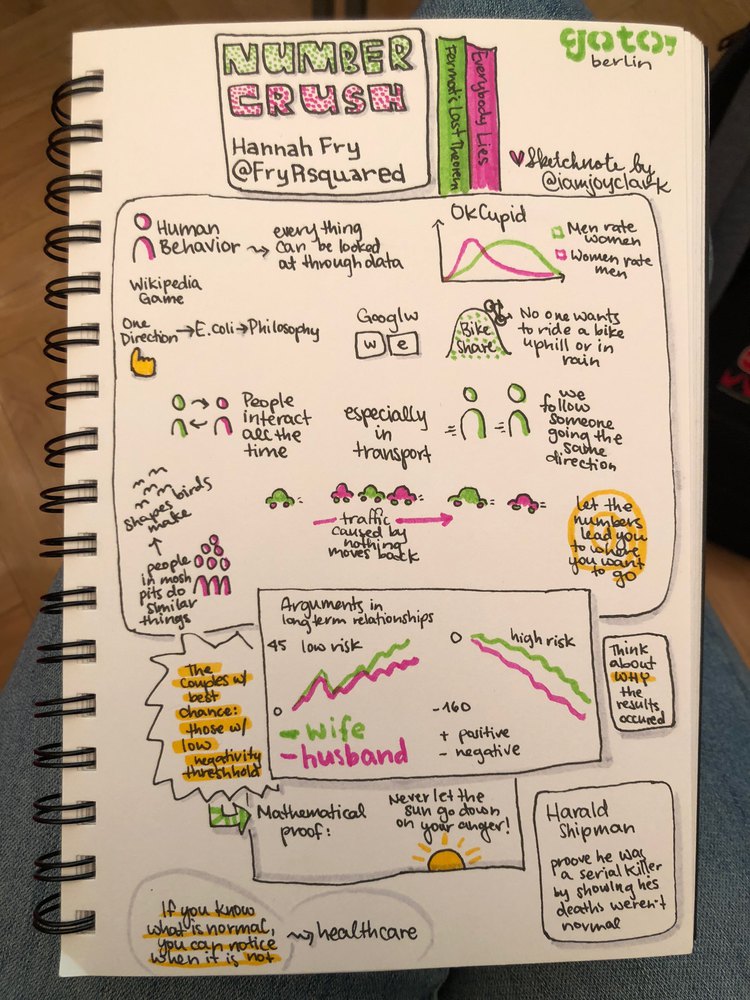 NUMBER
CRUSH
Hannah Fry
@FryRsquared
Fermat's Last Theorem
Everybody Lies
goto;
berlin
Sketchnote by
@iamjoyclark
Human
Behavior
everything
can be looked
at through data
OkCupid
Men rate
women
Women rate
men
Wikipedia
Game
One
Direction → E.coli → Philosophy
Googlw
w e
Bike
Share
No one wants
to ride a bike
uphill or in
rain
People
interact
all the
time
especially
in
transport
we
follow
someone
going the
same
direction
birds
make
shapes
people
in mosh
pits do
similar
things
traffic
caused by
nothing
moves back
let the
numbers
lead you
to where
you want
to go
Arguments in
long term relationships
45 low risk
0
0 high risk
-160
- wife
- husband
+ positive
- negative
The
couples w/
best
chance:
those w/
low
negativity
threshhold
Think
about
WHY
the
results
occured
Mathematical
proof:
Never let the
sun go down
on your anger!
Harald
Shipman
proove he was
a serial killer
by showing hes
deaths weren't
normal
If you know
what is normal,
you can notice
when it is not
healthcare